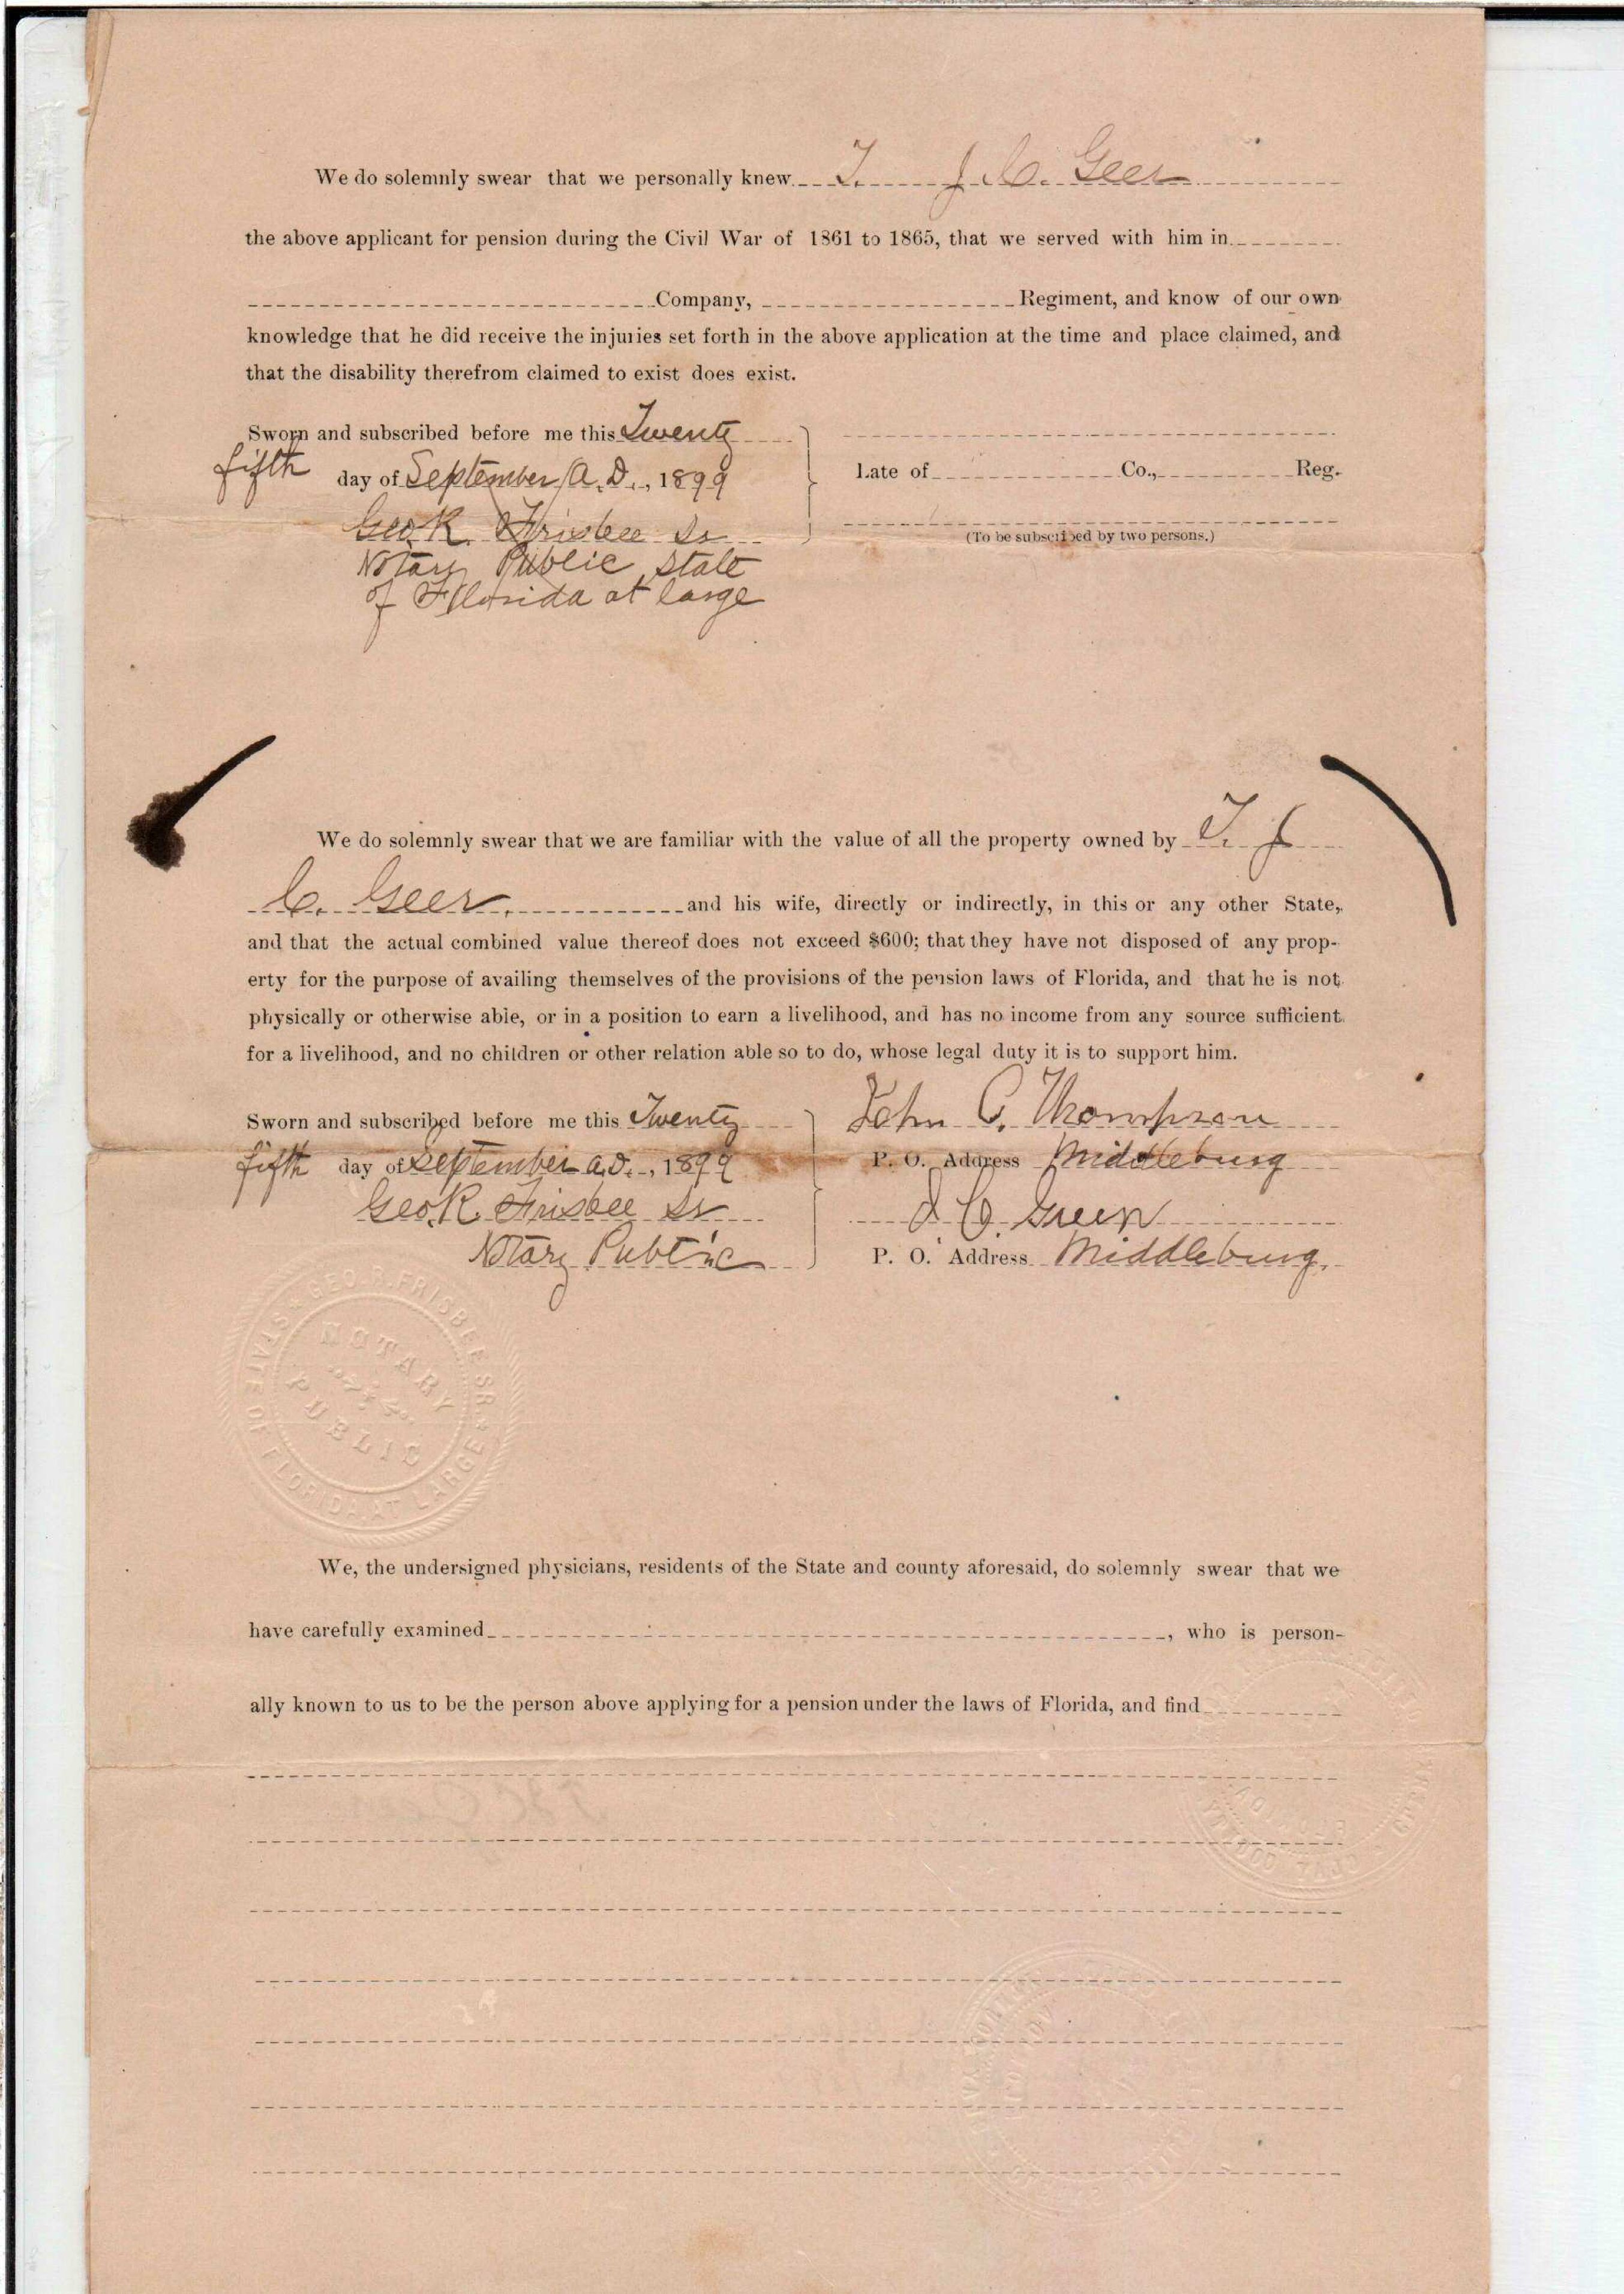 We do solemnly swear that we personally knew T. J. C. Geer
the above applicant for pension during the Civil War of 1861 to 1865, that we served with him in
Company, Regiment, and know of our own
knowledge that he did receive the injuries set forth in the above application at the time and place claimed, and
that the disability therefrom claimed to exist does exist.
Sworn and subscribed before me this Twenty
fifth day of September A. D., 1899
Late of Co., Reg.
Geo. R. Frisbee Sr
(To be subscribed by two persons.)
Notary Public State
of Florida at large
We do solemnly swear that we are familiar with the value of all the property owned by T. J
C. Geer. and his wife, directly or indirectly, in this or any other State,
and that the actual combined value thereof does not exceed $600; that they have not disposed of any prop-
erty for the purpose of availing themselves of the provisions of the pension laws of Florida, and that he is not
physically or otherwise able, or in a position to earn a livelihood, and has no income from any source sufficient
for a livelihood, and no children or other relation able so to do, whose legal duty it is to support him.
Sworn and subscribed before me this Twenty
John C. Thompson
fifth day of September A.D., 1899
P. O. Address Middleburg
Geo. R. Frisbee Sr
C. Green
Notary Public
P. O. Address Middleburg.
GEO. R. FRISBEE SR
STATE OF FLORIDA AT LARGE
NOTARY
PUBLIC
We, the undersigned physicians, residents of the State and county aforesaid, do solemnly swear that we
have carefully examined , who is person-
ally known to us to be the person above applying for a pension under the laws of Florida, and find